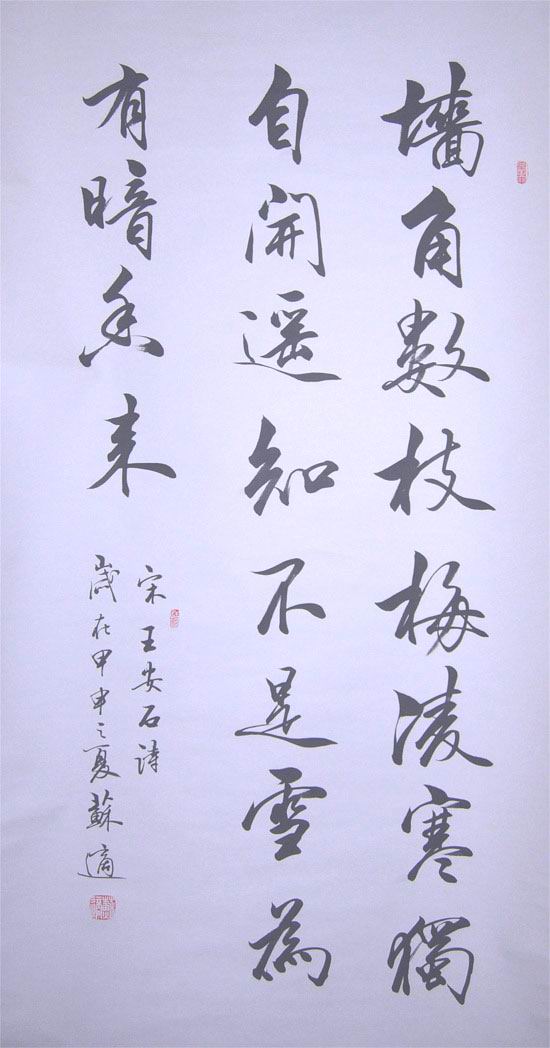 墙角数枝梅凌寒獨
自開遥知不是雪為
有暗香来
宋王安石詩
歲在甲申之夏蘇適